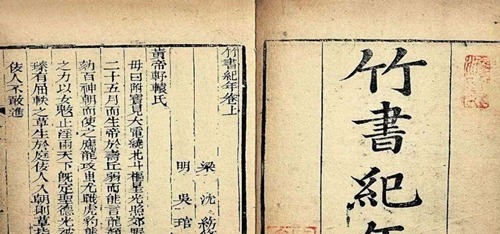 竹書紀年
竹書紀年卷上
梁 沈約
明 吳琯
黃帝軒轅氏
母曰附寶見大電繞北斗樞星光照郊野
二十五月而生帝於壽丘弱而能言龍顏
劾百神朝而使之應龍攻蚩尤戰虎豹
之力以女魃止淫雨天下既定聖德光被
臻有屈軼之草生於庭佞人入朝則草指
佞人不敢進